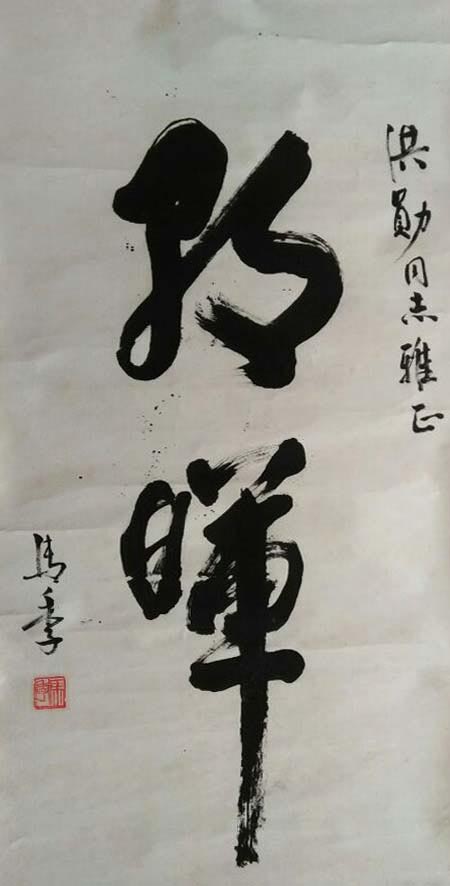 洪勛同志雅正
朝暉
马季